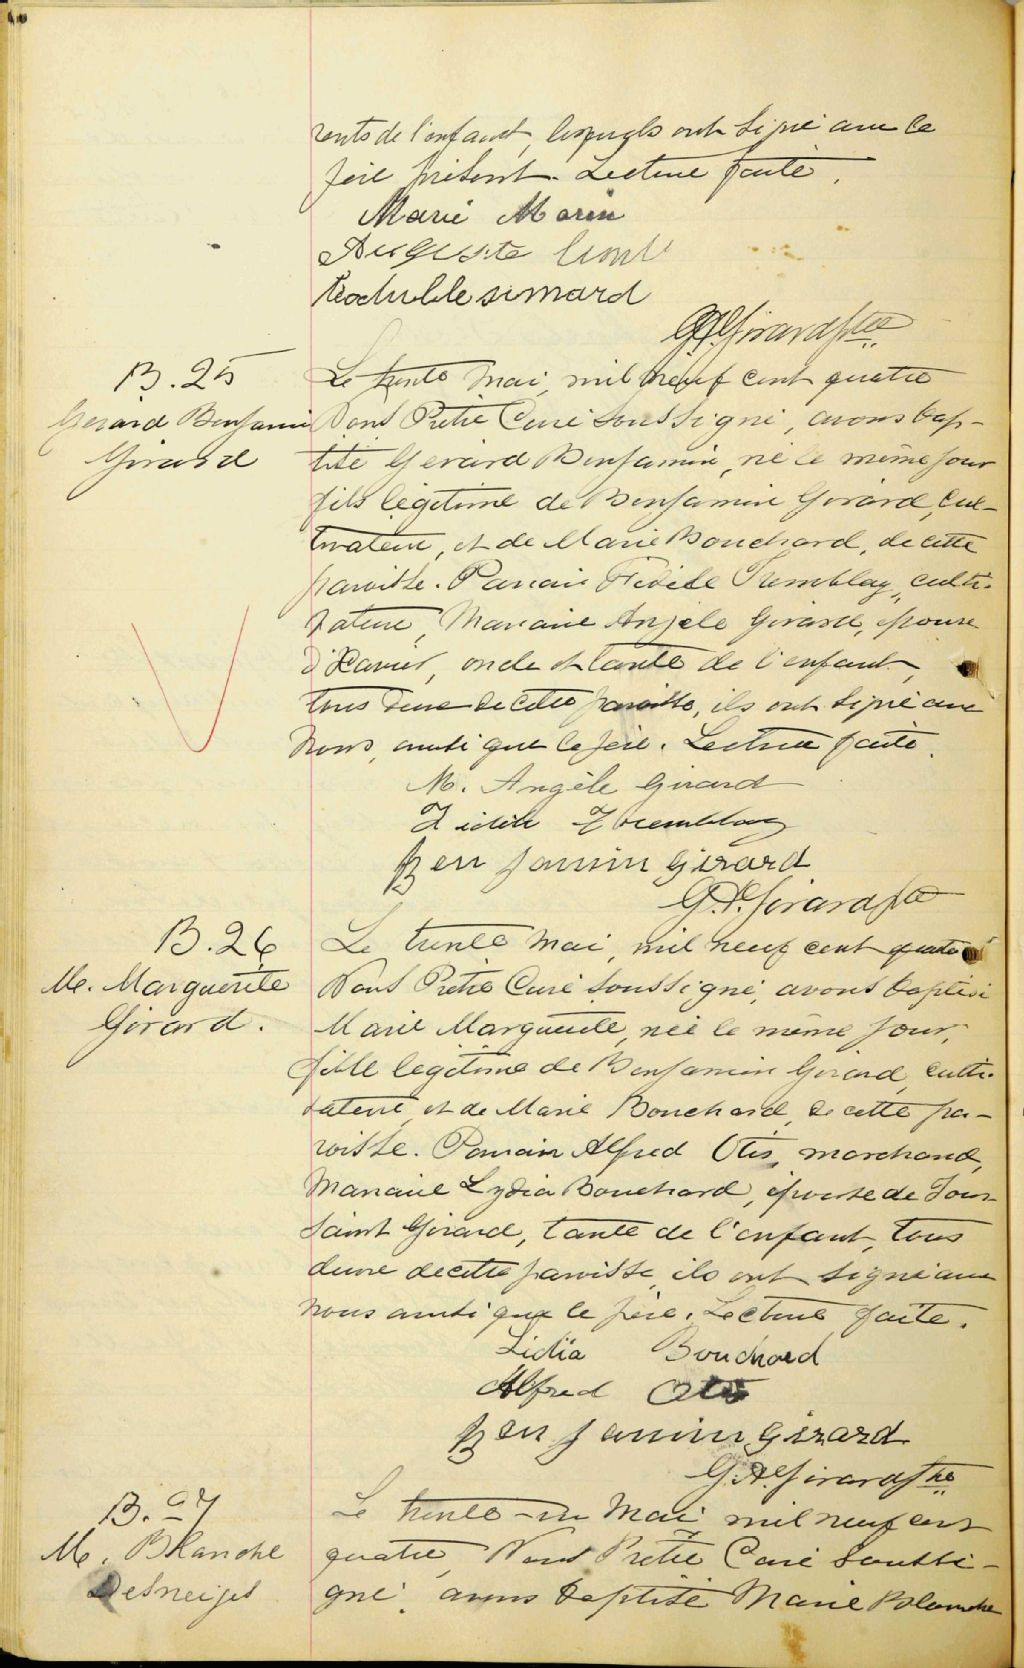 rents de l'enfant, lesquels ont signé avec le
père présent. Lecture faite.
Marie Morin
Auguste
téodulle simard
G. A. Girard Ptre
B. 25
Gérard Benjamin
Girard
Le trente Mai, mil neuf cent quatre
Nous Prêtre Curé soussigné, avons bap-
tisé Gérard Benjamin, né le même jour
fils légitime de Benjamin Girard, cul-
tivateur, et de Marie Bouchard, de cette
paroisse. Parrain Fidèle Tremblay, culti-
vateur, Marraine Angèle Girard, épouse
d'Xavier, oncle et tante de l'enfant,
tous deux de cette paroisse, ils ont signé avec
nous, ainsi que le père. Lecture faite.
M. Angèle Girard
Fidèle Tremblay
Ben jamin Girard
G. A. Girard Ptre
B. 26
M. Marguerite
Girard.
Le trente Mai, mil neuf cent quatre
Nous Prêtre Curé soussigné, avons baptisé
Marie Marguerite, née le même jour,
fille légitime de Benjamin Girard, culti-
vateur, et de Marie Bouchard, de cette pa-
roisse. Parrain Alfred Otis, marchand,
Marraine Lydia Bouchard, épouse de Tous-
saint Girard, tante de l'enfant, tous
deux de cette paroisse, ils ont signé avec
nous ainsi que le père. Lecture faite.
Lidïa Bouchard
Alfred Otis
Ben jamin Girard
G. A. Girard Ptre
B. 27
M. Blanche
Desneiges
Le trente-un Mai, mil neuf cent
quatre, Nous Prêtre Curé soussi-
gné, avons baptisé Marie Blanche